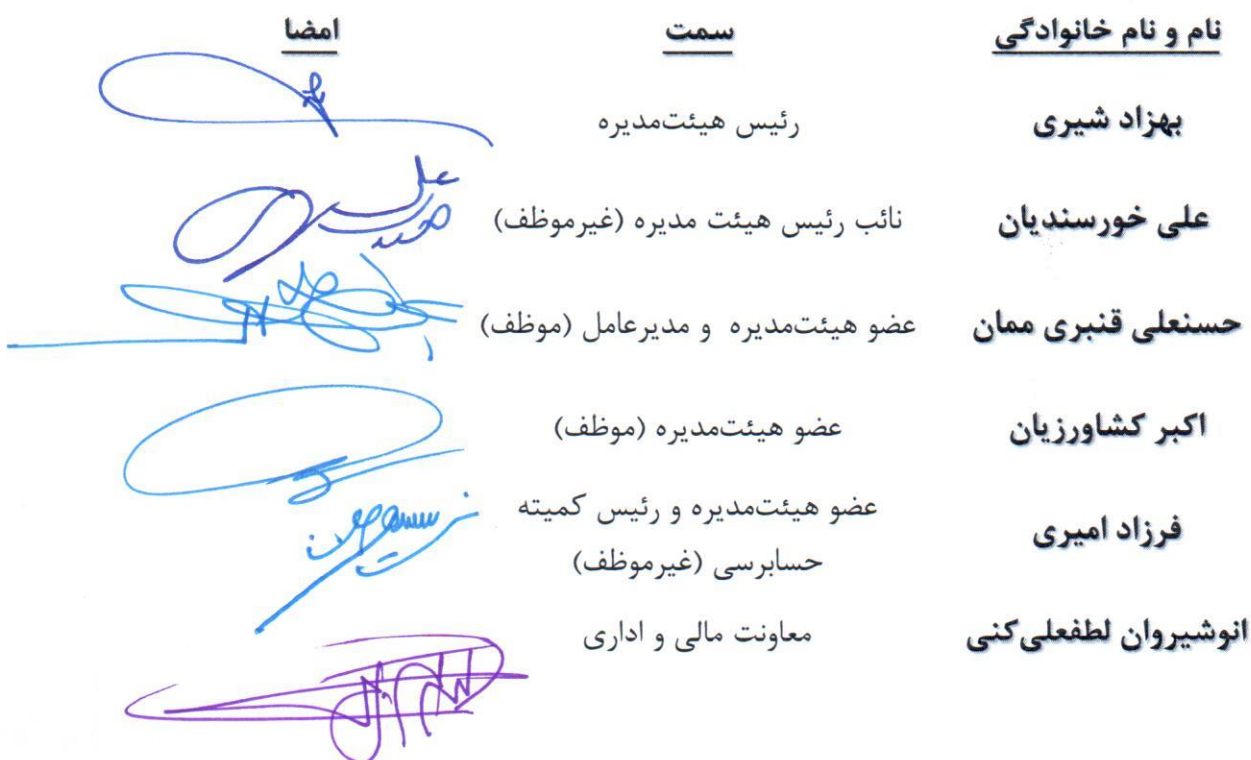 نام و نام خانوادگی سمت امضا
بهزاد شیری رئیس هیئت‌مدیره
علی خورسندیان نائب رئیس هیئت مدیره (غیرموظف)
حسنعلی قنبری ممان عضو هیئت‌مدیره و مدیرعامل (موظف)
اکبر کشاورزیان عضو هیئت‌مدیره (موظف)
فرزاد امیری عضو هیئت‌مدیره و رئیس کمیته
حسابرسی (غیرموظف)
انوشیروان لطفعلی‌کنی معاونت مالی و اداری